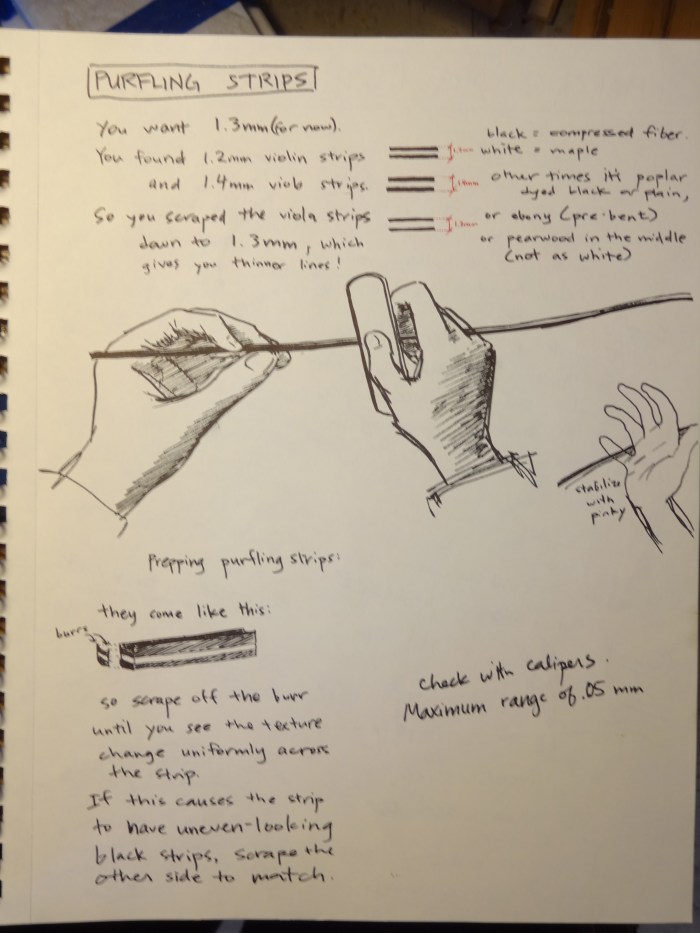 PURFLING STRIPS
You want 1.3mm (for now).
You found 1.2mm violin strips
and 1.4mm viola strips.
So you scraped the viola strips
down to 1.3mm, which
gives you thinner lines!
1.2mm
1.4mm
1.3mm
black = compressed fiber.
white = maple
other times it's poplar
dyed black or plain,
or ebony (pre-bent)
or pearwood in the middle
(not as white)
stabilize
with
pinky
Prepping purfling strips:
they come like this:
burrs
so scrape off the burr
until you see the texture
change uniformly across
the strip.
If this causes the strip
to have uneven-looking
black strips, scrape the
other side to match.
Check with calipers.
Maximum range of .05 mm